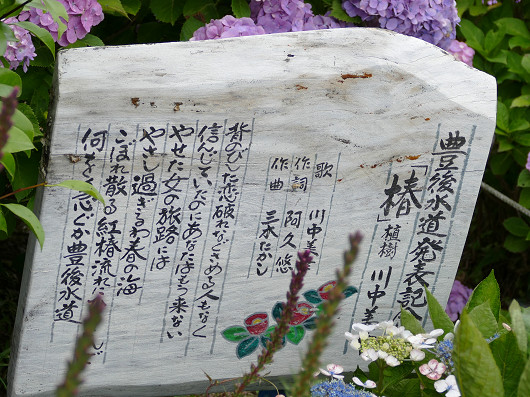 豊後水道発表記
「椿」植樹 川中美
歌 川中美
作詞 阿久悠
作曲 三木たかし
背のびした恋破れなぐさめる人もなく
信じていたのにあなたはもう来ない
やせた女の旅路には
やさし過ぎるわ春の海
こぼれ散る紅椿流れ
何をいそぐか豊後水道